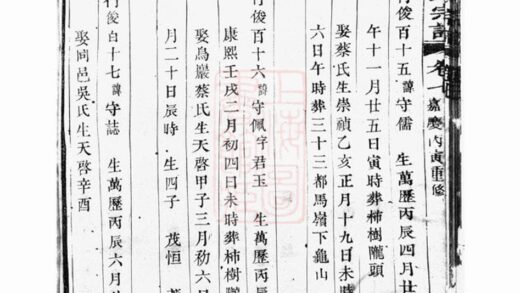 宗譜 卷七 嘉慶丙寅重修
行俊百十五諱守儒 生萬曆丙辰四月廿
午十一月廿五日寅時葬柿樹隴頭
娶蔡氏生崇禎乙亥正月十九日未時
六日午時葬三十三都馬嶺下龜山
行俊百十六諱守佩字君玉 生萬曆丙辰
康熙壬戌二月初四日未時葬柿樹
娶烏巖蔡氏生天啓甲子三月初六
月二十日辰時 生四子 茂恒
行俊百十七諱守誌 生萬曆丙辰六月
娶同邑吳氏生天啓辛酉